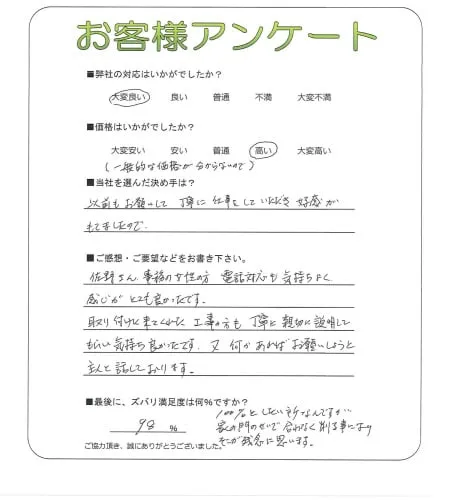 お客様アンケート
■弊社の対応はいかがでしたか？
大変良い 良い 普通 不満 大変不満
■価格はいかがでしたか？
大変安い 安い 普通 高い 大変高い
(一般的な価格が分からないので)
■当社を選んだ決め手は？
以前もお願いして 丁寧に仕事をしていただき 好感が
もてましたので。
■ご感想・ご要望などをお書き下さい。
佐野さん、事務の女性の方 電話対応も気持ちよく
感じがとても良かったです。
取り付けに来てくれた 工事の方も 丁寧に親切に説明して
もらい気持ち良かったです。又 何かあればお願いしようと
主人と話しております。
■最後に、ズバリ満足度は何％ですか？
98 ％
100%としたい所なんですが
家の門のせいで合わなく削る事になり
そこが残念に思います。
ご協力頂き、誠にありがとうございました。